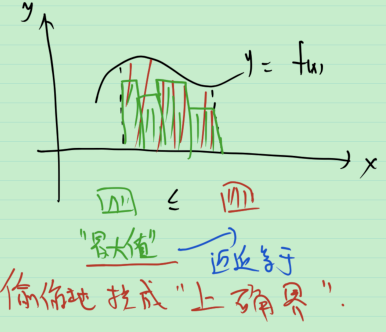 y
y = f(x)
x
≤
"最大值" 近近等于
偷偷地 换成 "上确界".